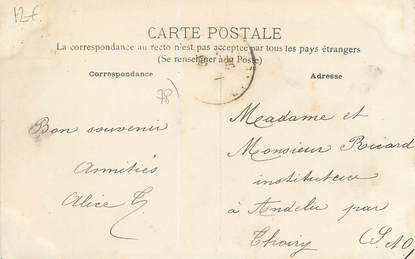 12f
CARTE POSTALE
La correspondance au recto n'est pas acceptée par tous les pays étrangers
(Se renseigner à la Poste)
Correspondance
Adresse
78)
Bon souvenir
Amnitiés
Alice
Madame et
Monsieur Ricard
instituteur
à Andelu par
Thoiry (S. & O)